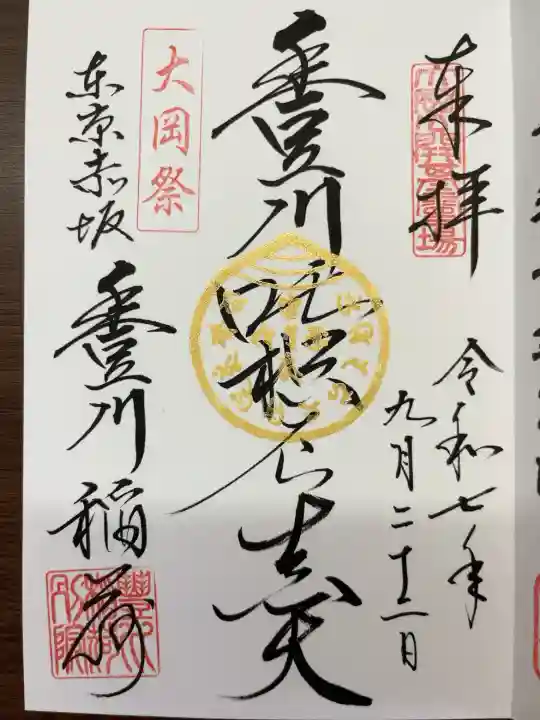 来拝
令和七年
九月二十二日
豊川吒枳尼真天
大岡祭
東京赤坂
豊川稲荷